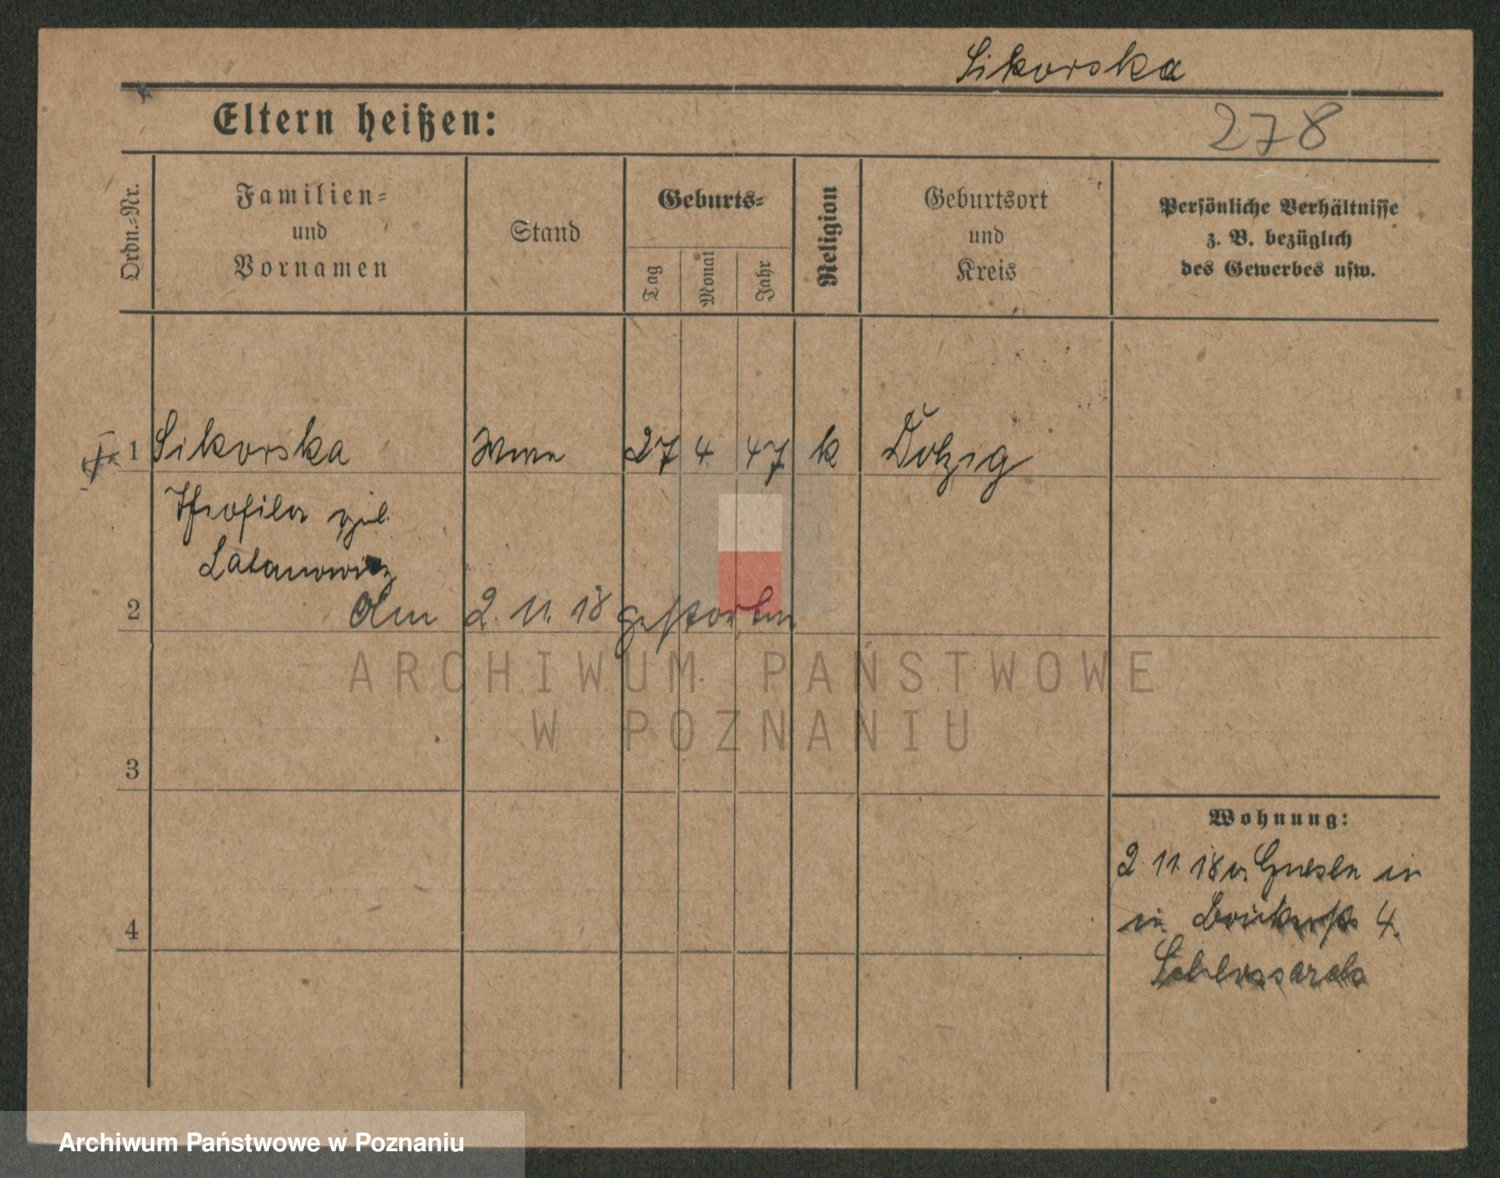 Sikorska
Eltern heißen:
278
Ordn.-Nr.
Familien-
und
Vornamen
Stand
Geburts-
Tag
Monat
Jahr
Religion
Geburtsort
und
Kreis
Persönliche Verhältnisse
z. B. bezüglich
des Gewerbes usw.
1 Sikorska Wwe 27 4. 47 k Dolzig
Theofila geb.
Latanowicz
2 Am 2. 11. 18 gestorben
ARCHIWUM PAŃSTWOWE
W POZNANIU
3
Wohnung:
2 11. 18 v. Gnesen in
in 4.
4
Archiwum Państwowe w Poznaniu